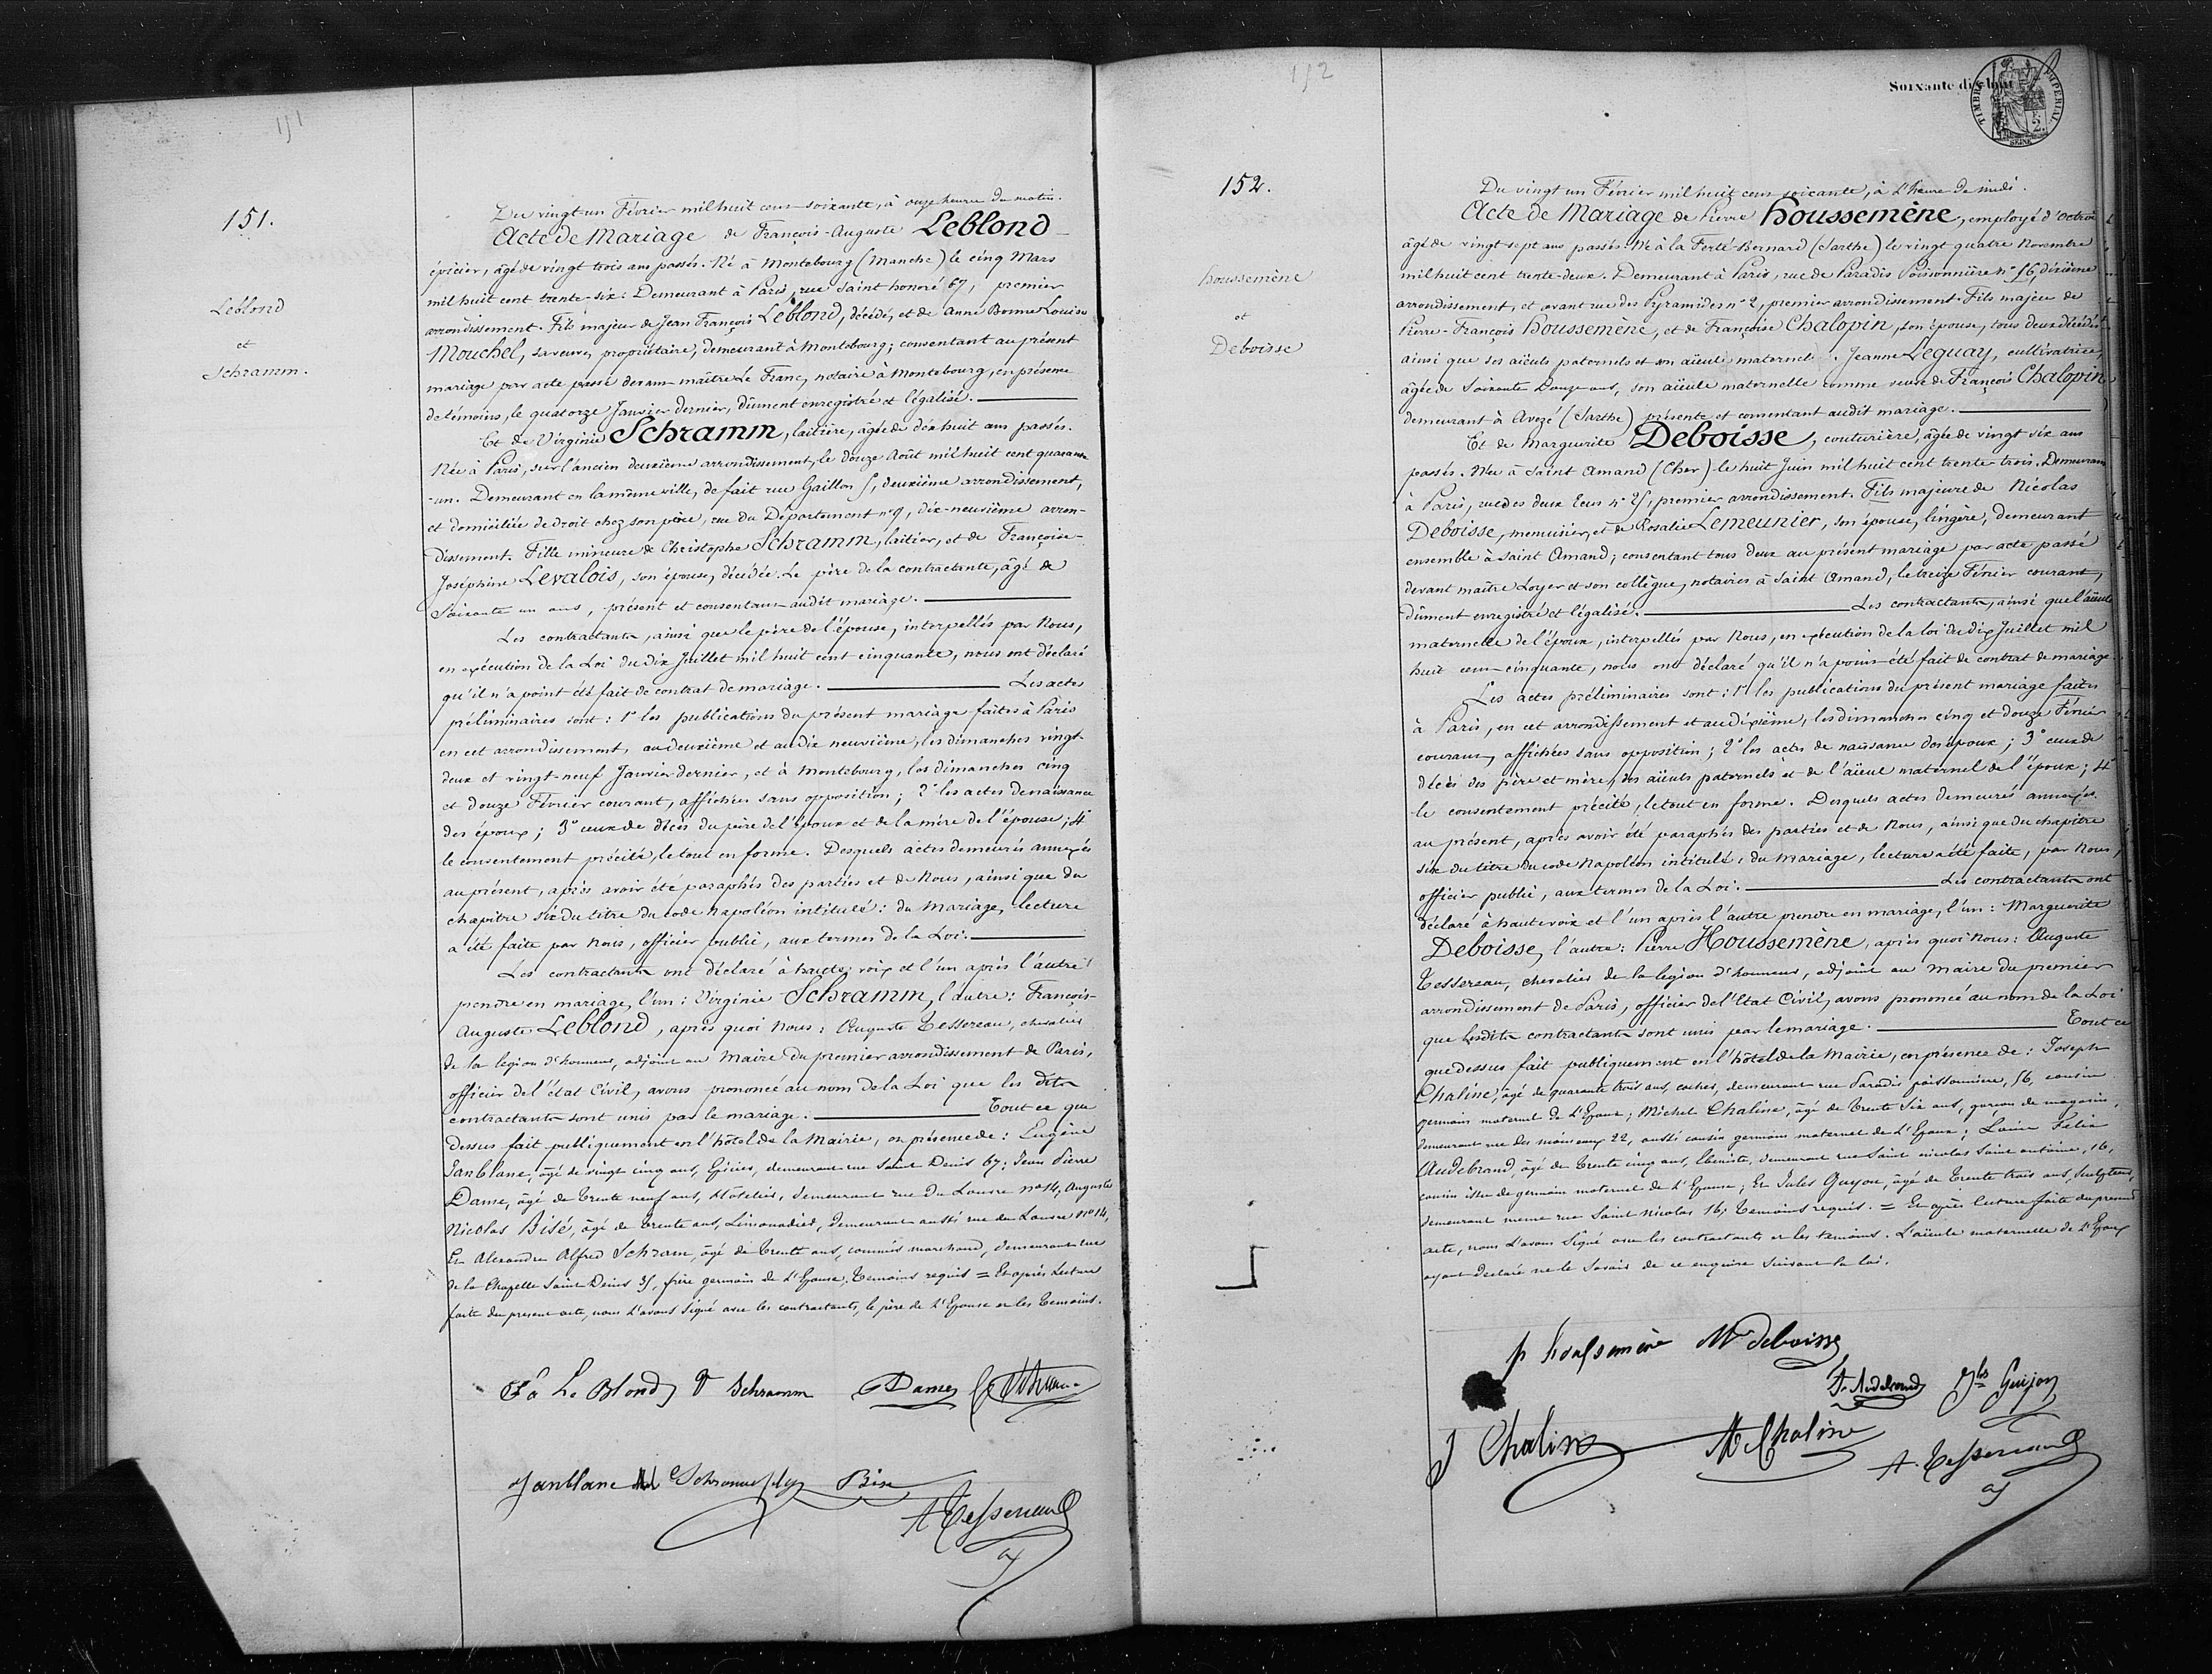 151
151.
Leblond
et
Schramm.
Du vingt-un Février mil huit cent soixante, à onze heures du matin.
Acte de Mariage de François-Auguste Leblond
épicier, âgé de vingt trois ans passés. Né à Montebourg (Manche) le cinq Mars
mil huit cent trente-six. Demeurant à Paris, rue Saint honoré 67, premier
arrondissement. Fils majeur de Jean François Leblond, décédé, et de Anne Bonne Louise
Mouchel, sa veuve, propriétaire, demeurant à Montebourg; consentant au présent
mariage par acte passé devant maître Le Franc, notaire à Montebourg, en présence
de témoins, le quatorze Janvier dernier, dûment enregistré et légalisé.
Et de Virginie Schramm, laitière, âgée de dix huit ans passés.
Née à Paris, sur l'ancien deuxième arrondissement, le douze Août mil huit cent quarante
-un. Demeurant en la même ville, de fait rue Gaillon 5, deuxième arrondissement,
et domiciliée de droit chez son père, rue du Département n° 9, dix-neuvième arron-
dissement. Fille mineure de Christophe Schramm, laitier, et de Françoise-
Joséphine Levalois, son épouse, décédée. Le père de la contractante, âgé de
Soixante un ans, présent et consentant audit mariage.
Les contractants, ainsi que le père de l'épouse, interpellés par Nous,
en exécution de la Loi du dix Juillet mil huit cent cinquante, nous ont déclaré
qu'il n'a point été fait de contrat de mariage. Les actes
préliminaires sont: 1° les publications du présent mariage faites à Paris
en cet arrondissement, au deuxième et au dix neuvième, les dimanches vingt-
deux et vingt-neuf Janvier dernier, et à Montebourg, les dimanches cinq
et douze Février courant, affichées sans opposition; 2° les actes de naissance
des époux; 3° ceux de décès du père de l'époux et de la mère de l'épouse; 4°
le consentement précité, le tout en forme. Desquels actes demeurés annexés
au présent, après avoir été paraphés des parties et de Nous, ainsi que du
chapitre six du titre du code Napoléon intitulé: du Mariage, lecture
a été faite par Nous, officier public, aux termes de la Loi.
Les contractants ont déclaré à haute voix et l'un après l'autre
prendre en mariage, l'un: Virginie Schramm, l'autre: François-
Auguste Leblond, après quoi Nous: Auguste Tessereau, chevalier
de la légion d'honneur, adjoint au Maire du premier arrondissement de Paris,
officier de l'état Civil, avons prononcé au nom de la Loi que les dits
contractants sont unis par le mariage. Tout ce que
dessus fait publiquement en l'hôtel de la Mairie, en présence de: Eugène
Janblanc, âgé de vingt cinq ans, Epicier, demeurant rue Saint Denis 67; Jean Pierre
Dame, âgé de trente neuf ans, Hôtelier, demeurant rue du Louvre n° 14, Auguste
Nicolas Bisé, âgé de trente ans, Limonadier, demeurant aussi rue du Louvre N° 14,
Et Alexandre Alfred Schram, âgé de trente ans, commis marchand, demeurant rue
de la Chapelle Saint Denis 35, frère germain de l'Epouse, Témoins requis = Et après Lecture
faite du présent acte, nous l'avons signé avec les contractants, le père de l'Epouse et les Témoins.
F a Le Blond V Schramm Dame
Janblanc Schramm Bise
A Tessereau
aj
152
152.
houssemène
et
Deboisse
Soixante dix huit
TIMBRE IMPERIAL
2.
SEINE
Du vingt un Février mil huit cent soixante, à l'heure de midi.
Acte de Mariage de Pierre houssemène, employé d'octroi
âgé de vingt sept ans passés. Né à la Ferté-Bernard (Sarthe) le vingt quatre Novembre
mil huit cent trente-deux. Demeurant à Paris, rue de Paradis Poissonnière n° 56, dixième
arrondissement, et avant rue des Pyramides n° 2, premier arrondissement. Fils majeur de
Pierre-François houssemène, et de Françoise Chalopin, son épouse, tous deux décédés
ainsi que ses aïeuls paternels et son aïeul maternel. Jeanne Leguay, cultivatrice,
âgée de Soixante Douze ans, son aïeule maternelle comme veuve de François Chalopin
demeurant à Avezé (Sarthe) présente et consentant audit mariage.
Et de Marguerite Deboisse, couturière, âgée de vingt six ans
passés. Née à Saint Amand (Cher) le huit Juin mil huit cent trente trois. Demeurant
à Paris, rue des deux Ecus n° 25, premier arrondissement. Fille majeure de Nicolas
Deboisse, menuisier, et de Rosalie Lemeunier, son épouse, lingère, demeurant
ensemble à Saint Amand; consentant tous deux au présent mariage par acte passé
devant maître Loyer et son collègue, notaires à Saint Amand, le treize Février courant,
dûment enregistré et légalisé. Les contractants, ainsi que l'aïeule
maternelle de l'époux, interpellés par Nous, en exécution de la loi du dix Juillet mil
huit cent cinquante, nous ont déclaré qu'il n'a point été fait de contrat de mariage.
Les actes préliminaires sont: 1° les publications du présent mariage faites
à Paris, en cet arrondissement et au dixième, les dimanches cinq et douze Février
courant, affichées sans opposition; 2° les actes de naissance des époux; 3° ceux de
décès des père et mère, des aïeuls paternels et de l'aïeul maternel de l'époux; 4°
le consentement précité, le tout en forme. Desquels actes demeurés annexés
au présent, après avoir été paraphés des parties et de Nous, ainsi que du chapitre
six du titre du code Napoléon intitulé: du Mariage, lecture a été faite, par Nous,
officier public, aux termes de la Loi. Les contractants ont
déclaré à haute voix et l'un après l'autre prendre en mariage, l'un: Marguerite
Deboisse, l'autre: Pierre Houssemène, après quoi Nous: Auguste
Tessereau, chevalier de la légion d'honneur, adjoint au Maire du premier
arrondissement de Paris, officier de l'Etat Civil, avons prononcé au nom de la Loi
que lesdits contractants sont unis par le mariage. Tout ce
que dessus fait publiquement en l'hôtel de la Mairie, en présence de: Joseph
Chaline, âgé de quarante trois ans, cocher, demeurant rue Paradis poissonnière, 56, cousin
germain maternel de l'Epoux; Michel Chaline, âgé de trente Six ans, garçon de magasin,
demeurant rue des moineaux 22, aussi cousin germain maternel de l'Epoux; Felix
Audebrand, âgé de trente cinq ans, Ebéniste, demeurant rue Saint nicolas Saint antoine, 16,
cousin issu de germain maternel de l'Epouse; Et Jules Guyon, âgé de trente trois ans, Sculpteur,
demeurant meme rue Saint Nicolas 16, Temoins requis. = Et après lecture faite du present
acte, nous l'avons Signé avec les contractants et les témoins. L'aïeule maternelle de l'Epoux
ayant declaré ne le Savoir de ce enquise Suivant la loi.
p houssemène Mte deboisse
F. Audebrand Jles Guyon
J Chaline M Chaline
A. Tessereau
aj